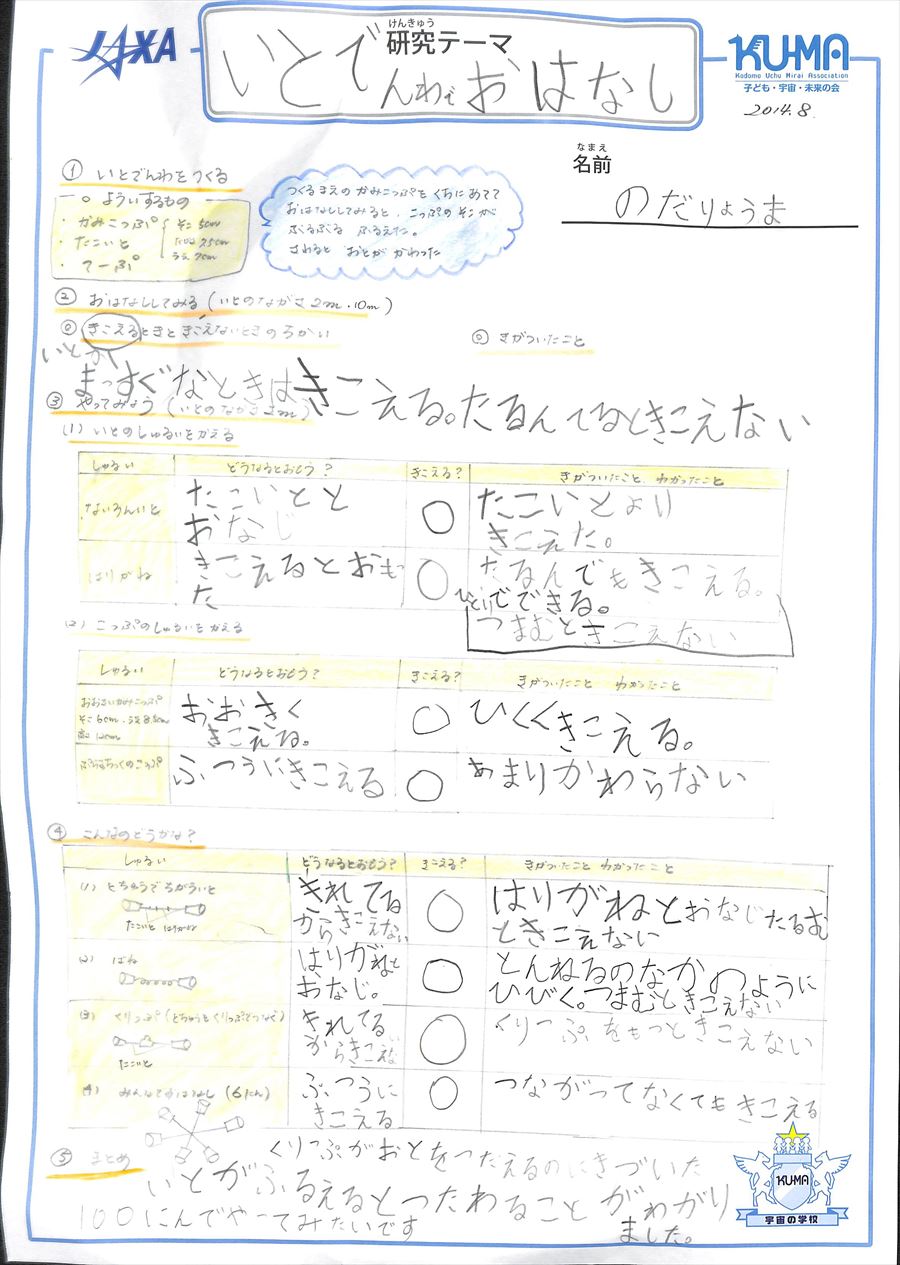 JAXA
けんきゅう
研究テーマ
いとでんわでおはなし
KU-MA
Kodomo Uchu Mirai Association
子ども・宇宙・未来の会
2014.8.
なまえ
名前
のだりょうま
① いとでんわをつくる
○ よういするもの
・かみこっぷ そこ5cm
たかさ7.5cm
うえ7cm
・たこいと
・てーぷ
つくるまえの かみこっぷを くちにあてて
おはなししてみると、こっぷの そこが
ぶるぶる ふるえた。
さわると おとが かわった
② おはなししてみる (いとのながさ 2m・10m)
◎ きこえるときと きこえないときのちがい
◎ きがついたこと
いとが
まっすぐなときはきこえる。たるんでるときこえない
③ やってみよう (いとのながさ 2m)
(1) いとのしゅるいをかえる
しゅるい どうなるとおもう? きこえる? きがついたこと、わかったこと
ないろんいと たこいとと おなじ ○ たこいとより きこえた。
はりがね きこえるとおもた ○ たるんでもきこえる。
ひとりでできる。
つまむときこえない
(2) こっぷのしゅるいをかえる
しゅるい どうなるとおもう? きこえる? きがついたこと わかったこと
おおきいかみこっぷ
そこ6cm・うえ8.5cm
高さ12cm
おおきく きこえる。 ○ ひくくきこえる。
ぷらすちっくのこっぷ ふつうにきこえる ○ あまりかわらない
④ こんなのどうかな?
しゅるい どうなるとおもう? きこえる? きがついたこと わかったこと
(1) とちゅうでちがういと
たこいと はりがね
きれてる からきこえない ○ はりがねとおなじたるむ
ときこえない
(2) ばね
はりがねと おなじ。 ○ とんねるのなかのように
ひびく。つまむときこえない
(3) くりっぷ(とちゅうをくりっぷでつなぐ)
たこいと
きれてる からきこえない ○ くりっぷをもつときこえない
(4) みんなでおはなし (6にん)
ふつうに きこえる ○ つながってなくてもきこえる
⑤ まとめ
くりっぷがおとをつたえるのにきづいた
いとがふるえるとつたわることがわかり
ました。
100にんでやってみたいです
KU-MA
宇宙の学校